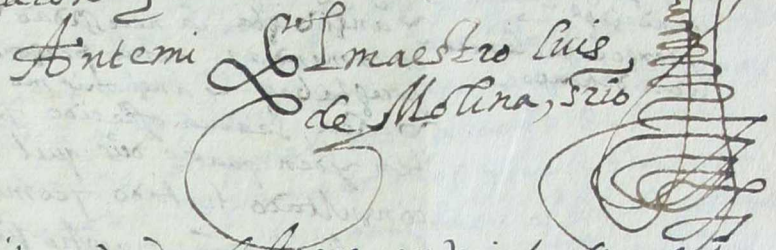 Antemi El maestro luis
de Molina, srio